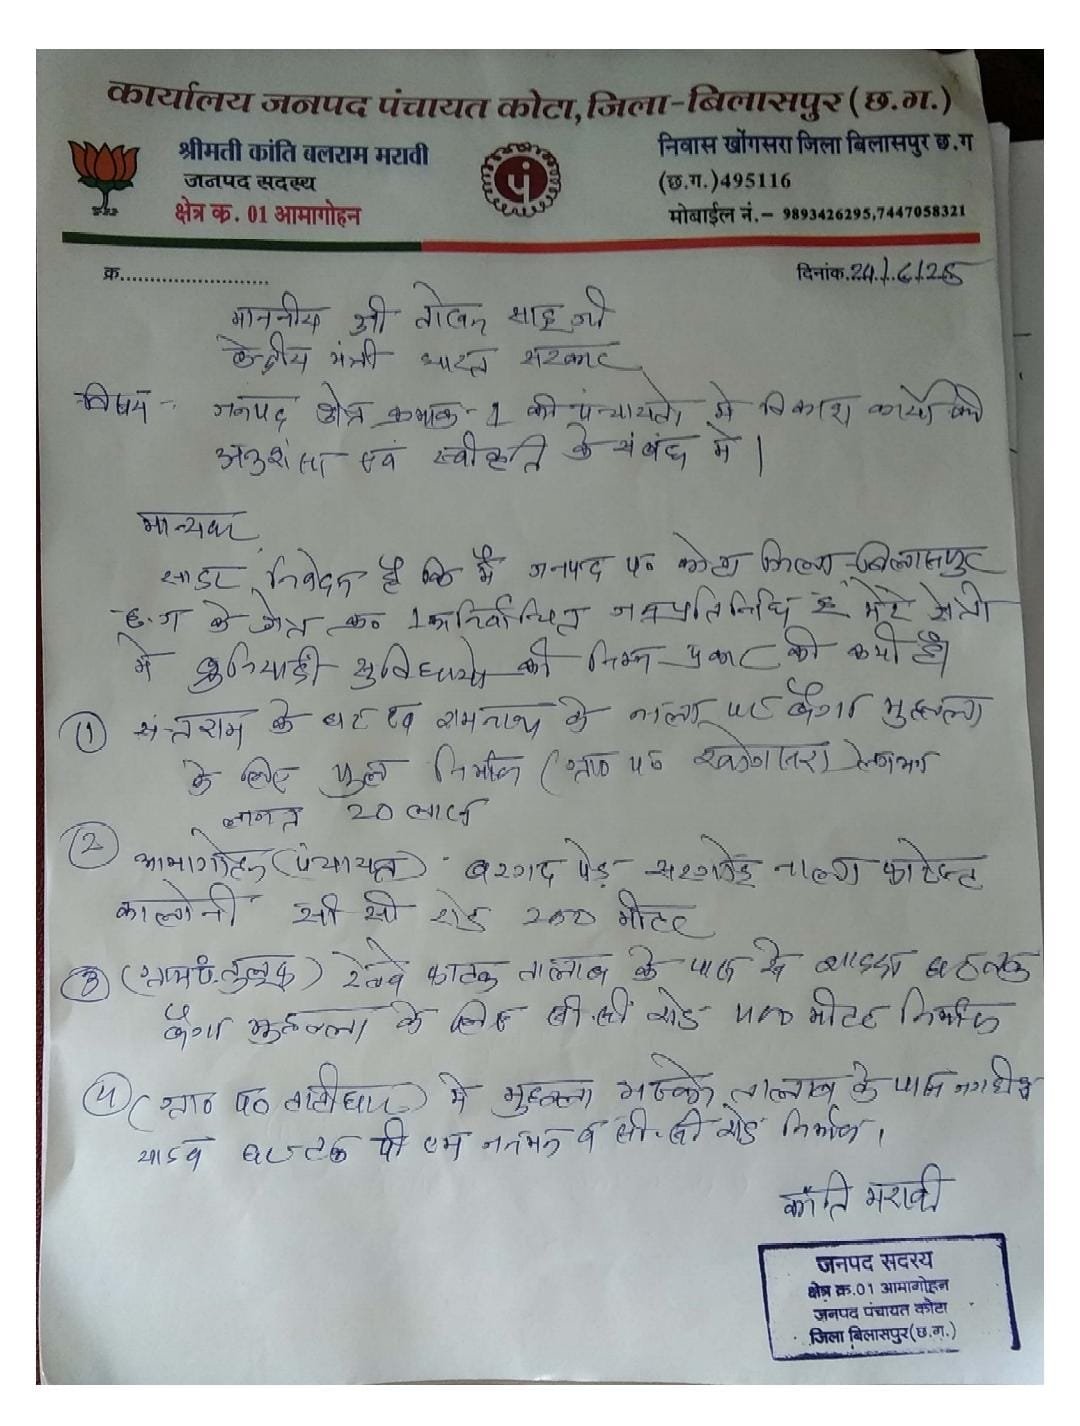 कार्यालय जनपद पंचायत कोटा, जिला-बिलासपुर (छ.ग.)
श्रीमती कांति बलराम मरावी
जनपद सदस्य
क्षेत्र क. 01 आमागोहन
पं
निवास खोंगसरा जिला बिलासपुर छ.ग
(छ.ग.)495116
मोबाईल नं.- 9893426295,7447058321
क्र.
दिनांक.24/6/25
माननीय श्री तोखन साहू जी
केन्द्रीय मंत्री भारत सरकार
विषय - जनपद क्षेत्र क्रमांक-1 की पंचायतो में विकास कार्यो की
अनुशंसा एवं स्वीकृति के संबंध में।
मान्यवर,
सादर निवेदन है कि मैं जनपद पं० कोटा जिला-बिलासपुर
छ.ग के क्षेत्र क्र० 1 निर्वाचित जनप्रतिनिधि हूं मेरे क्षेत्र
में बुनियादी सुविधाओ की निम्न प्रकार की कमी है।
(1) संतराम के घर रामनाथ के नाला पर बैगा मुहल्ला
के लिए पुल निर्माण (ग्रा० पं० खोंगसरा) लगभग
लागत 20 लाख
(2) आमागोहन (पंचायत) बरगद पेड़ नाला फारेस्ट
कालोनी सी सी रोड 200 मीटर
(3) रेलवे फाटक तालाब के पास से घर तक
बैगा मुहल्ला के लिए सी.सी रोड 400 मीटर निर्माण
(4) (ग्रा० पं० टाटीधार) में मुहल्ला तालाब के पास
यादव घर तक पी एम जनमन सी.सी रोड निर्माण।
कांति मरावी
जनपद सदस्य
क्षेत्र क्र.01 आमागोहन
जनपद पंचायत कोटा
जिला बिलासपुर(छ.ग.)